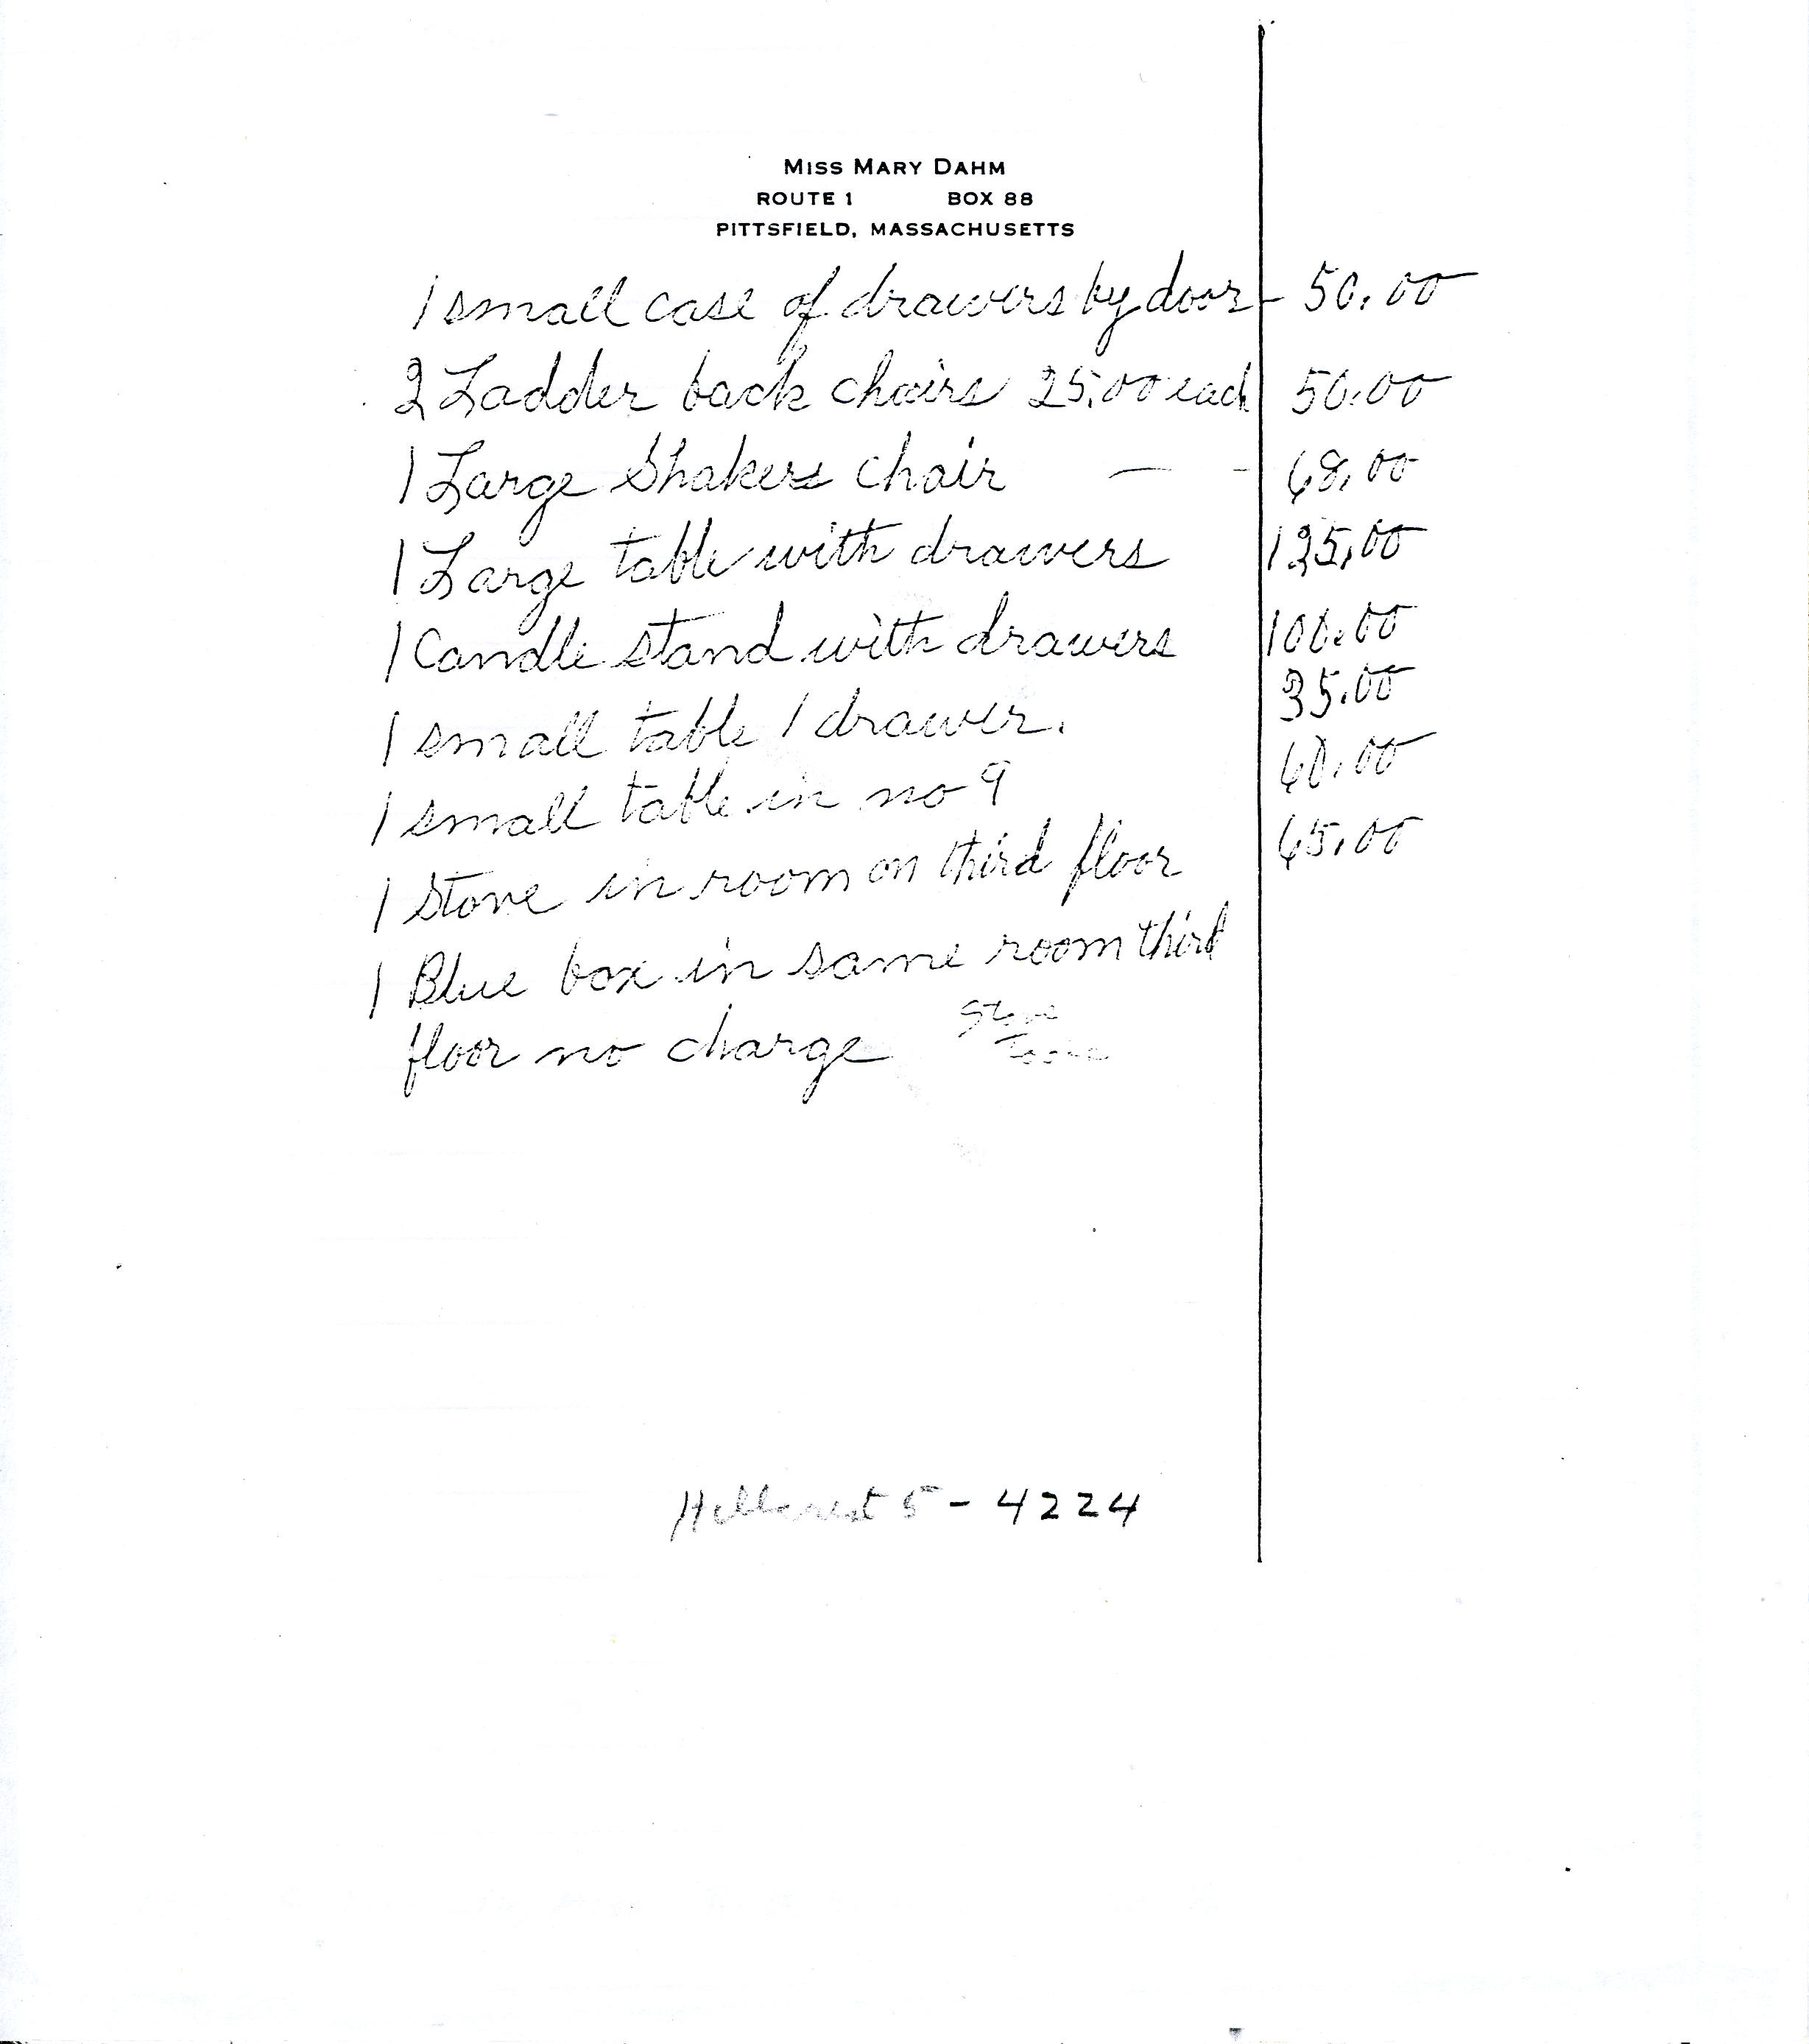 MISS MARY DAHM
ROUTE 1 BOX 88
PITTSFIELD, MASSACHUSETTS
1 small case of drawers by door - 50.00
2 Ladder back chairs 25.00 each 50.00
1 Large Shakers chair — - 68.00
1 Large table with drawers 125.00
1 Candle stand with drawers 100.00
1 small table 1 drawer. 35.00
1 small table in no 9 60.00
1 Stove in room on third floor 65.00
1 Blue box in same room third
floor no charge Stove
Hillcrest 5-4224